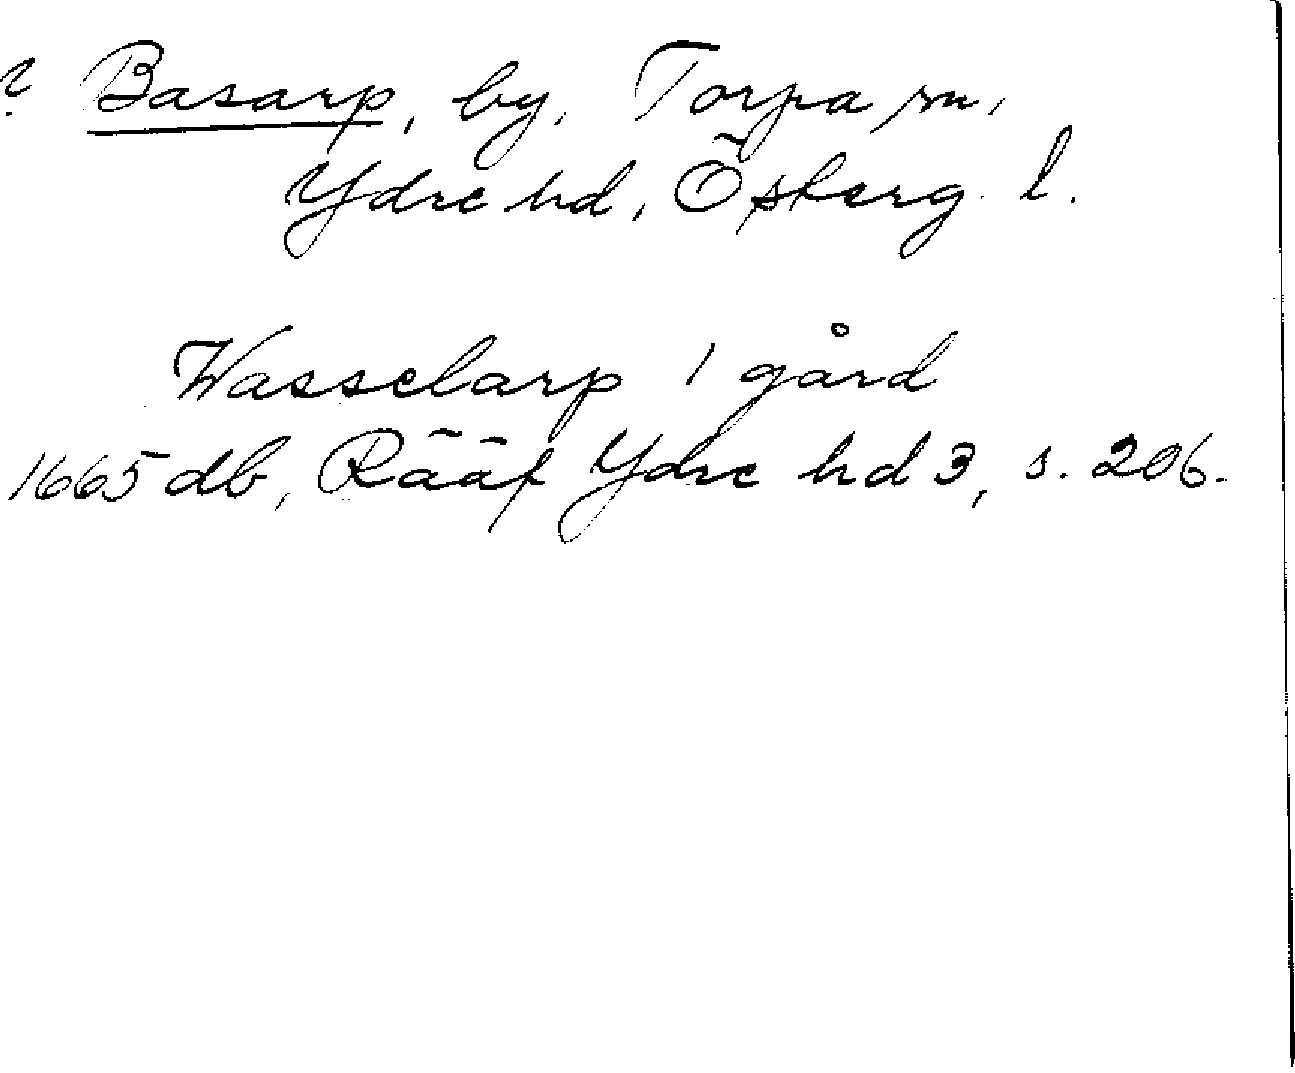 ? Basarp, by, Torpa sn,
Ydre hd, Österg. l.
Wasselarp 1 gård
1665 db, Rääf Ydre hd 3, s. 206.